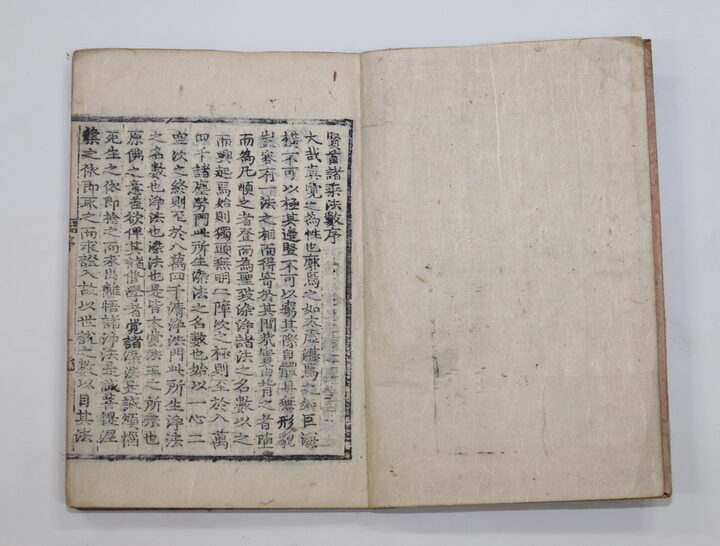 賢首諸乘法數序
大哉真覺之為性也廓焉之如太虛湛焉之若巨海
橫不可以極其邊竪不可以窮其際自體且無形貌
豈容有一法之相而得寄於其間哉實由背之者墮
而為凡順之者登而為聖致染淨諸法之名數以之
而興起焉始則獨頭無明二障次之極則至於八萬
四千諸塵勞門此所生染法之名數也始以一心二
空次之終則至於八萬四千清淨法門此所生淨法
之名數也淨法也染法也是皆大覺法王之所示也
原佛之意蓋欲俾其諸當學者覺諸染法是誠煩惱
死生之依即捨之而求出離悟諸淨法是誠菩提涅
槃之依即取之而求證入故以世說之數以目其法
序